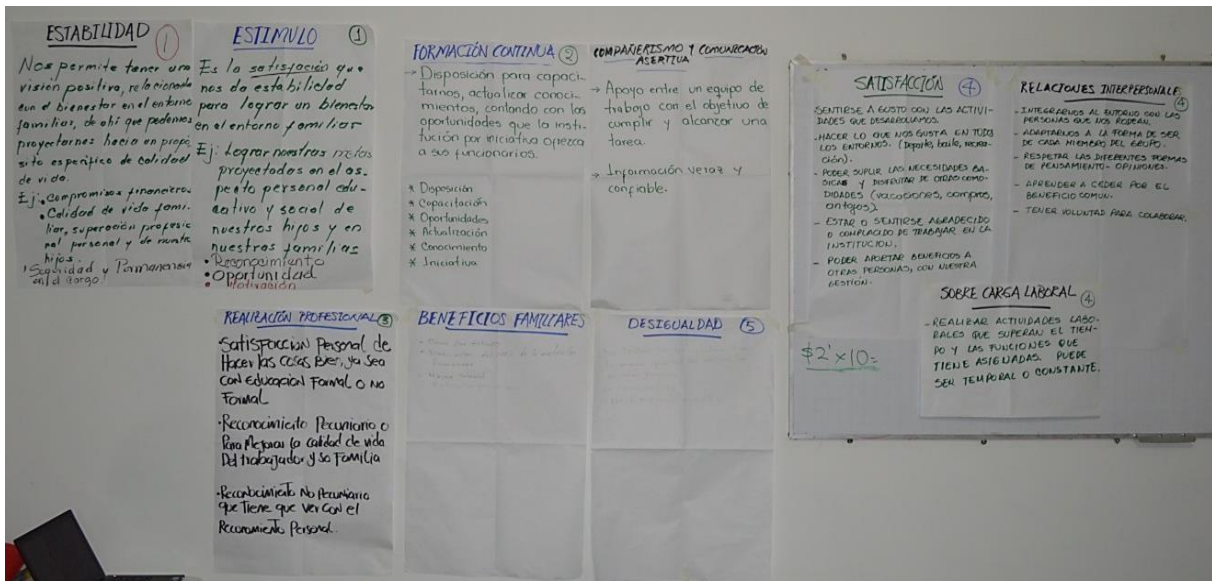 ESTABILIDAD ①
Nos permite tener una
visión positiva, relacionada
con el bienestar en el entorno
familiar, de ahi que podemos
proyectarnos hacia un propó
sito especifico de calidad
de vida.
Ej: • compromisos financieros
• Calidad de vida fami-
liar, superación profesio
nal personal y de nuestros
hijos.
Seguridad y Permanencia
en el cargo!
ESTIMULO ①
Es la satisfación que
nos da estabilidad
para lograr un bienestar
en el entorno familiar
Ej: Lograr nuestras metas
proyectadas en el as-
pecto personal edu-
cativo y social de
nuestros hijos y en
nuestras familias
• Reconocimiento
• Oportunidad
• Motivación
FORMACIÓN CONTINUA ②
→ Disposición para capaci-
tarnos, actualizar conoci-
mientos, contando con las
oportunidades que la insti-
tución por iniciativa ofrezca
a sus funcionarios.
* Disposición
* Capacitación
* Oportunidades
* Actualización
* Conocimiento
* Iniciativa
COMPAÑERISMO Y COMUNICACIÓN
ASERTIVA
→ Apoyo entre un equipo de
trabajo con el objetivo de
cumplir y alcanzar una
tarea.
→ Información veraz y
confiable.
SATISFACCIÓN ④
SENTIRSE A GUSTO CON LAS ACTIVI-
DADES QUE DESARROLLAMOS.
- HACER LO QUE NOS GUSTA EN TODOS
LOS ENTORNOS. (Deporte, baile, recrea-
ción).
- PODER SUPLIR LAS NECESIDADES BA-
SICAS Y DISFRUTAR DE OTRAS COMO-
DIDADES (vacaciones, compras,
antojos).
- ESTAR O SENTIRSE AGRADECIDO
O COMPLACIDO DE TRABAJAR EN LA
INSTITUCION.
- PODER APORTAR BENEFICIOS A
OTRAS PERSONAS, CON NUESTRA
GESTIÓN.
RELACIONES INTERPERSONALE
④
- INTEGRARNOS AL ENTORNO CON LAS
PERSONAS QUE NOS RODEAN.
- ADAPTARNOS A LA FORMA DE SER
DE CADA MIEMBRO DEL GRUPO.
- RESPETAR LAS DIFERENTES FORMAS
DE PENSAMIENTO - OPINIONES.
- APRENDER A CEDER POR EL
BENEFICIO COMUN.
- TENER VOLUNTAD PARA COLABORAR.
REALIZACIÓN PROFESIONAL ③
Satisfaccion Personal de
Hacer las cosas Bien, ya sea
con Educacion Formal o no
Formal
• Reconocimiento Pecuniario o
Para Mejorar la calidad de vida
Del trabajador y su Familia
• Reconocimiento No Pecuniario
que Tiene que ver con el
Personal.
BENEFICIOS FAMILIARES
DESIGUALDAD ⑤
$2'x10=
SOBRE CARGA LABORAL ④
- REALIZAR ACTIVIDADES LABO-
RALES QUE SUPERAN EL TIEM-
PO Y LAS FUNCIONES QUE
TIENE ASIGNADAS. PUEDE
SER TEMPORAL O CONSTANTE.